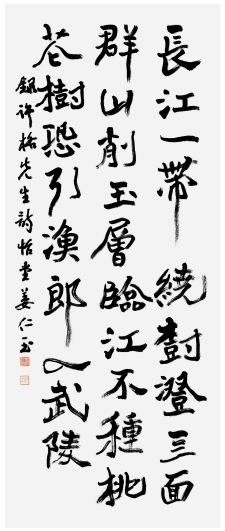 長江一帶繞封澄三面
群山削玉層臨江不種桃
花樹恐引漁郎入武陵
錄許格先生詩怡堂姜仁玉